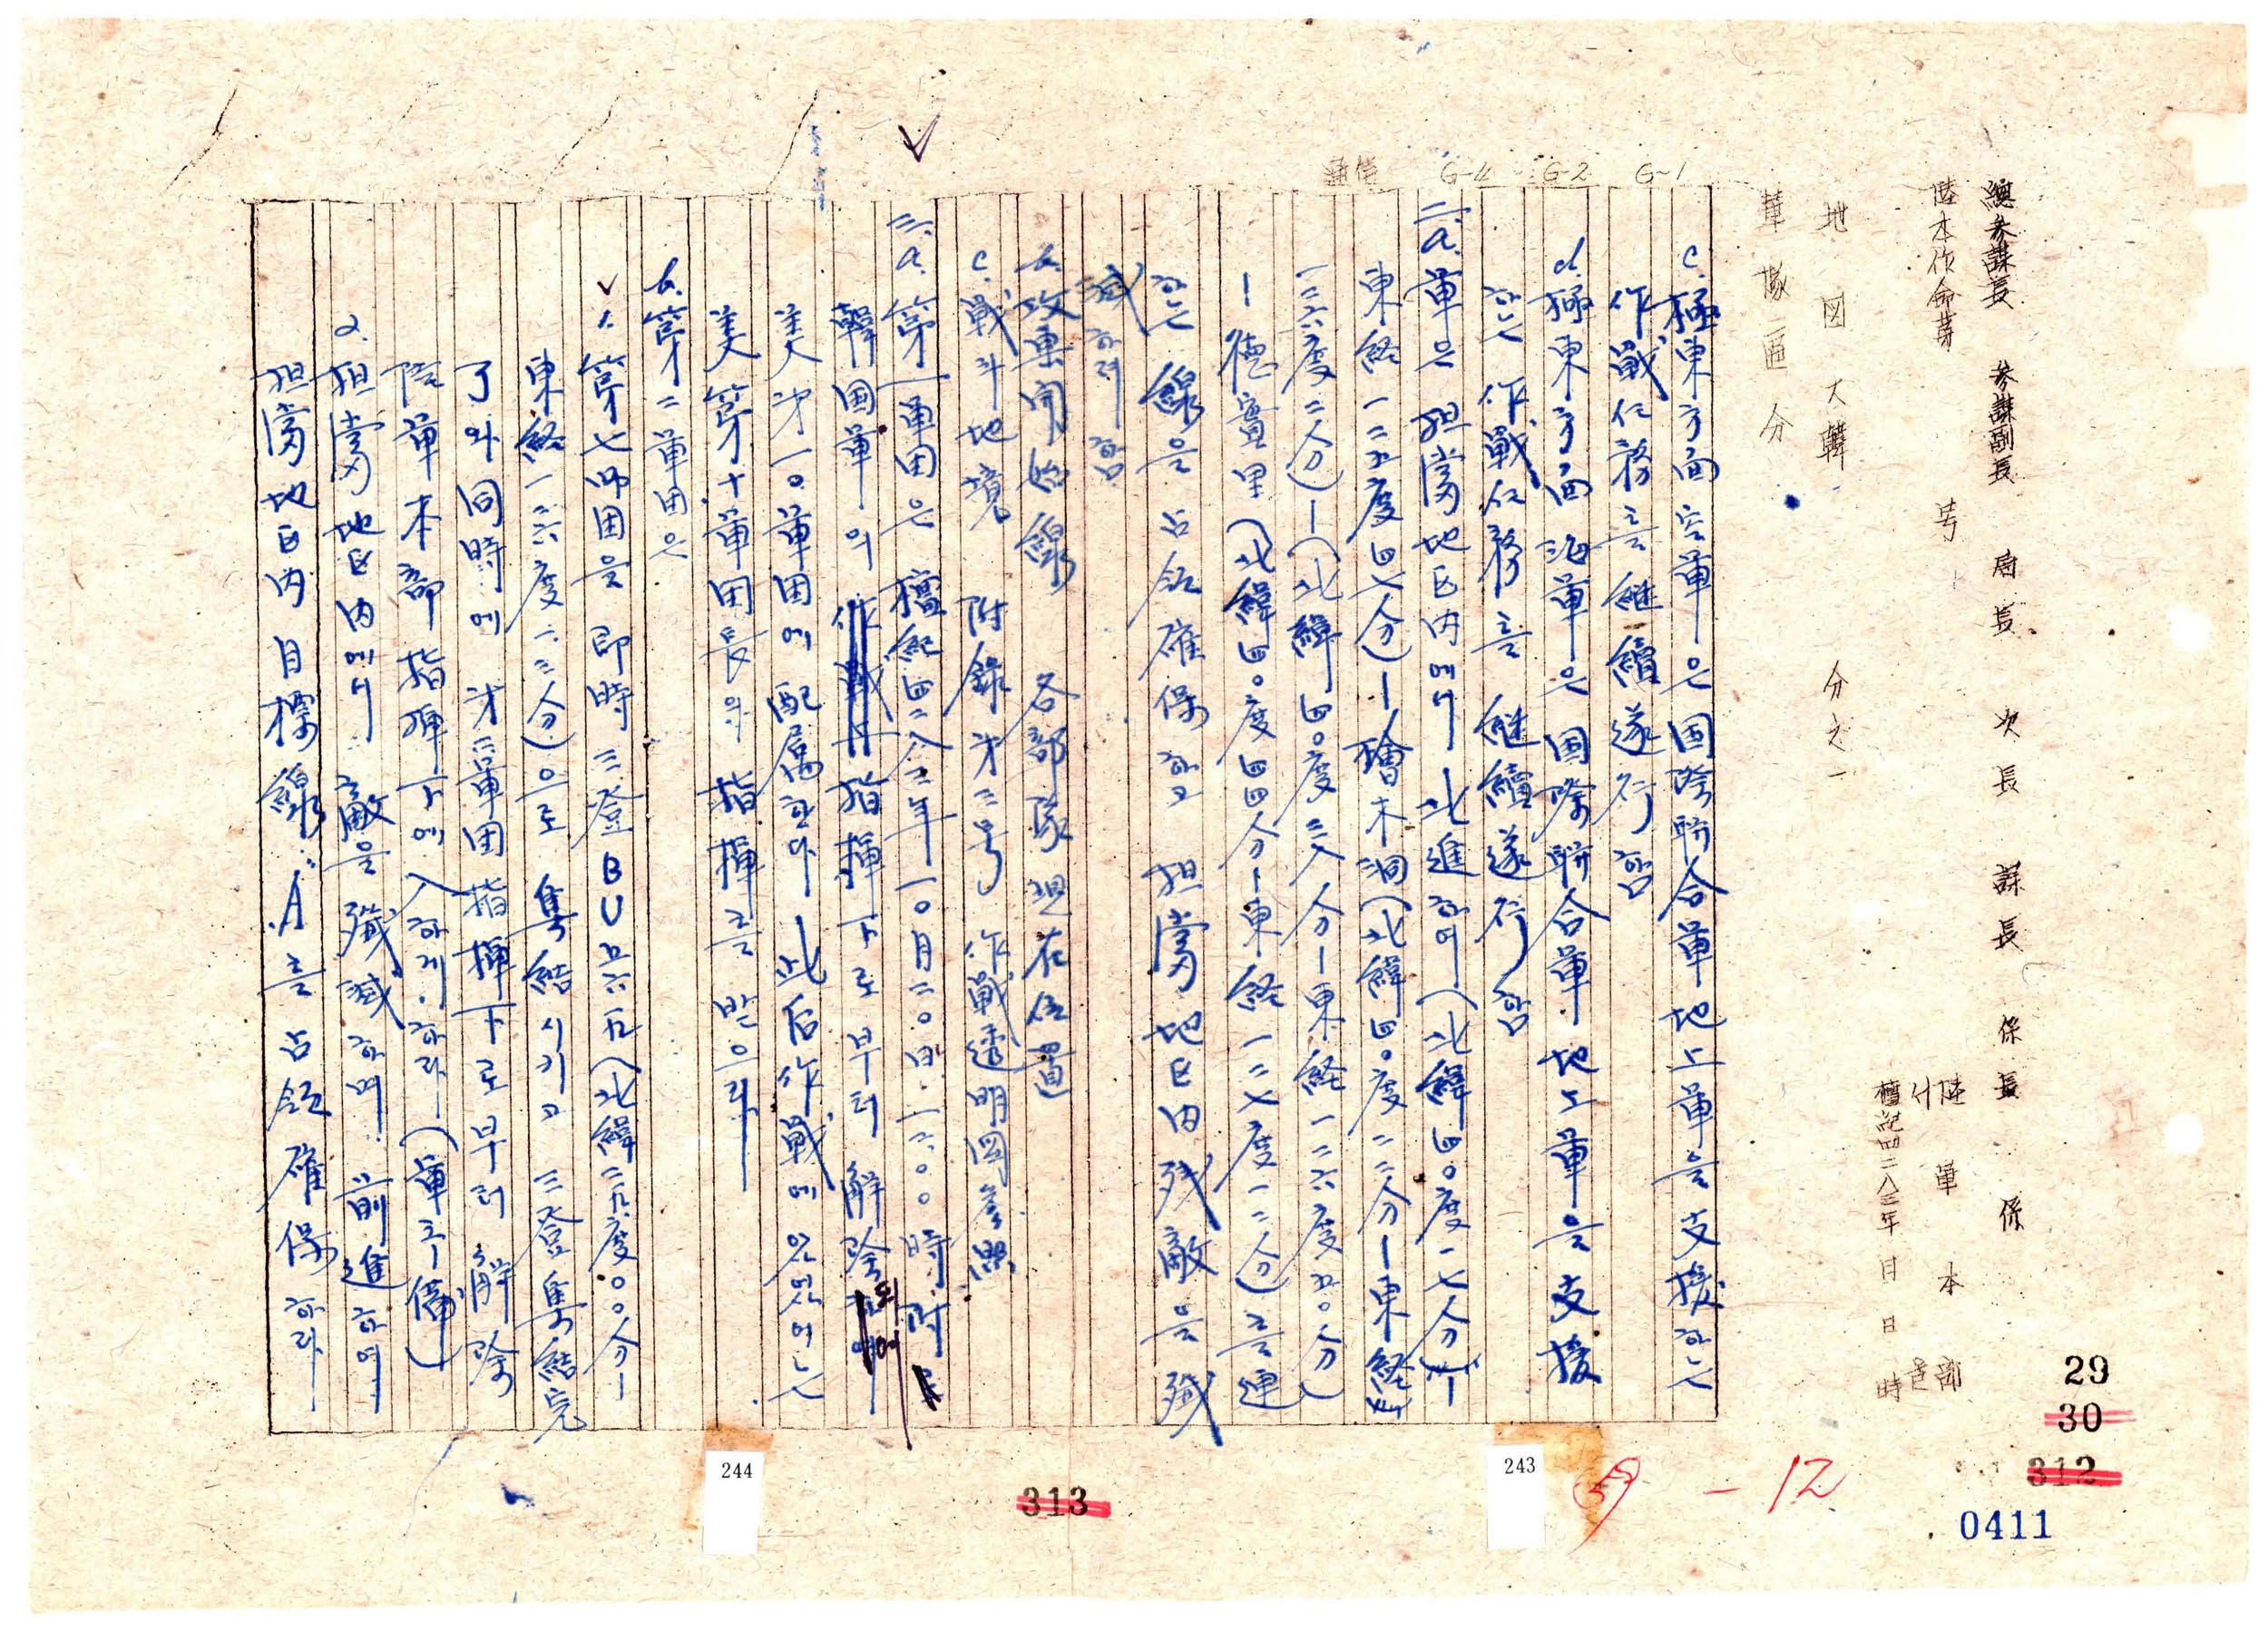 總參謀長 參謀副長 局長 次長 課長 係長 係
陸本作命 第 号
陸軍本部
서
檀紀四二八三年 月 日 時
地図 大韓 分之一
軍隊區分
通信 G-4 G-2 G-1
C. 極東方面 空軍은 国際聯合軍 地上軍을 支援하는
作戦任務를 継続遂行함
d. 極東方面 海軍은 国際聯合軍 地上軍을 支援
하는 作戦任務를 継続遂行함
二. a. 軍은 担當地区内에서 北進하여 (北緯四〇度一七分
東経一二五度四七分)—檜木洞(北緯四〇度二二分—東経
一二六度二分)—(北緯四〇度三八分—東経一二六度五〇分)
—徳實里(北緯四〇度四四分—東経一二七度一二分)를 連
하는 線을 占領確保하고 担當地区内 残敵을 殲
滅하려함
b. 攻撃開始線 各部隊現在位置
C. 戦斗地境 附錄 才三号 作戦透明図 參照
三. a. 第一軍団은 檀紀四二八三年一〇月二〇日一二〇〇時附
韓国軍의 指揮下로부터 解除되어
美才一〇軍団에 配属한다 此后作戦에 있어는
美第十軍団長의 指揮를 받으라
b. 第二軍団은
1. 第七師団을 即時 三登BU五六五(北緯三九度〇〇分—
東経一二六度一三分)으로 集結시키고 三登集結完
了와 同時에 才二軍団指揮下로부터 解除
陸軍本部指揮下에 入하게 하라(軍予備)
2. 担當地区内에서 敵을 殲滅하며 前進하여
担當地区内 目標線 A를 占領確保하라
29
30
312
313
243
244
- 12
0411